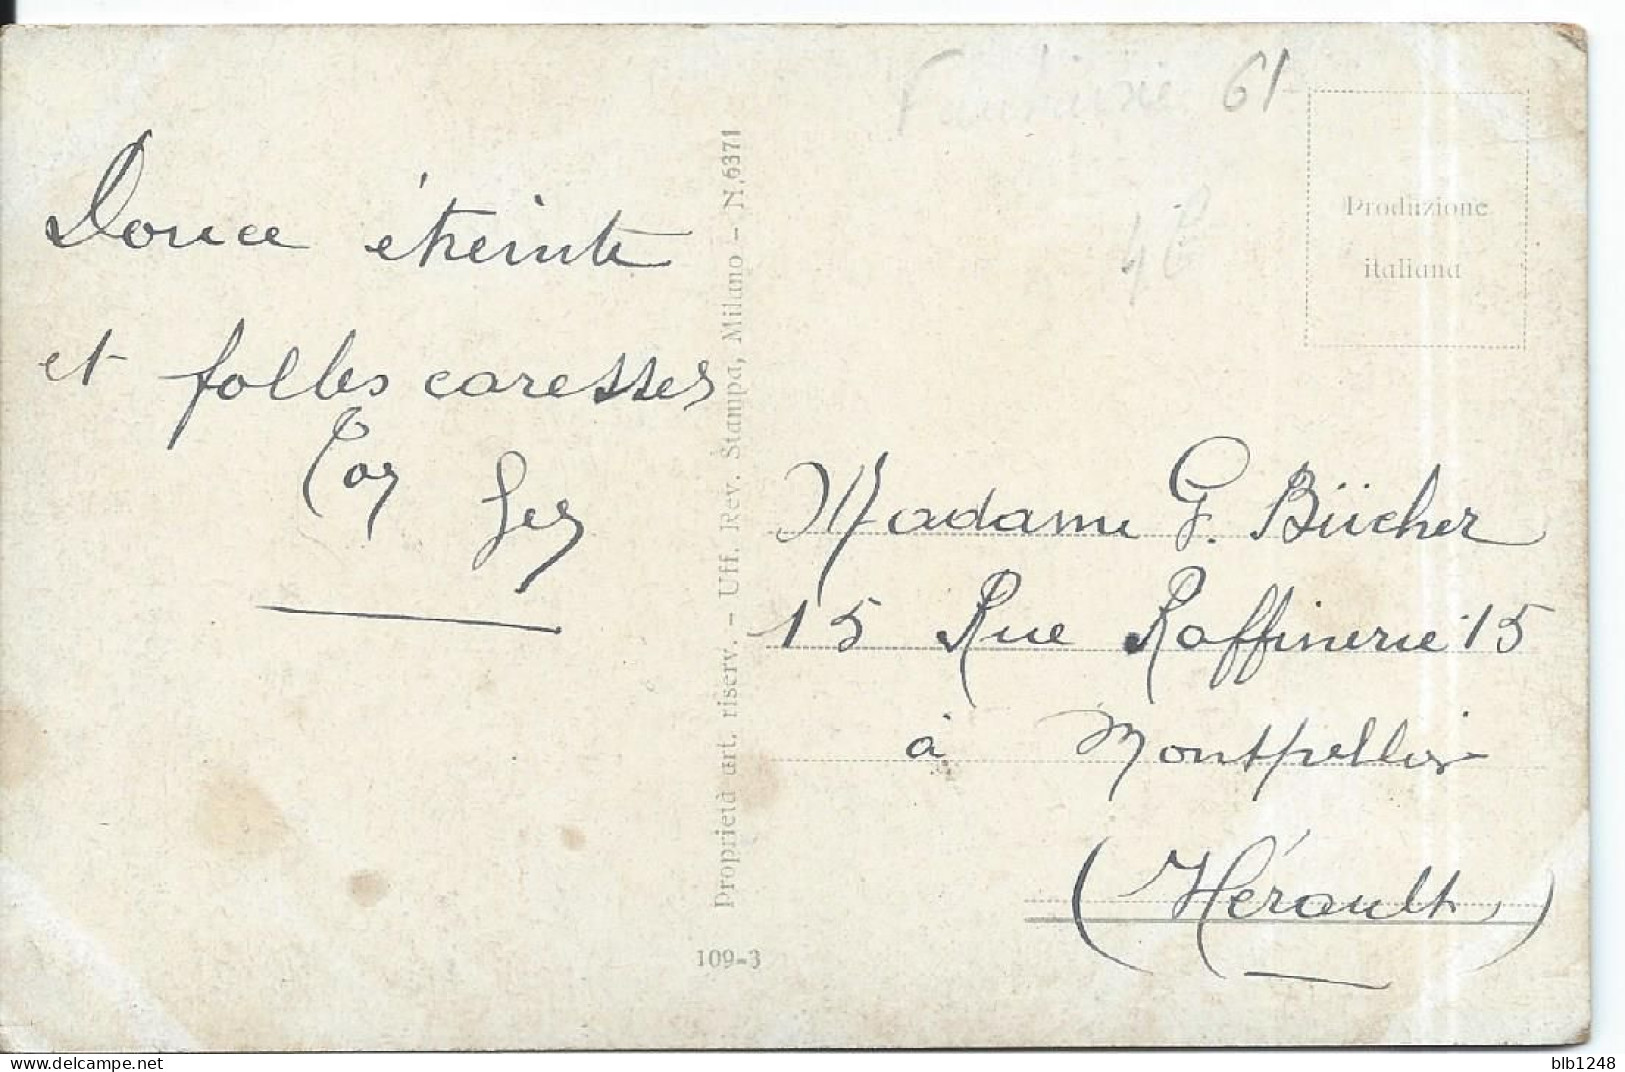 Douce étreinte
et folles caresses
Ges
61
4€
Produzione
italiana
Proprietà art. riserv. - Uff. Rev. Stampa, Milano - N. 6371
109-3
Madame G. Bücher
15 Rue Raffinerie 15
à Montpellier
(Hérault)
blb1248